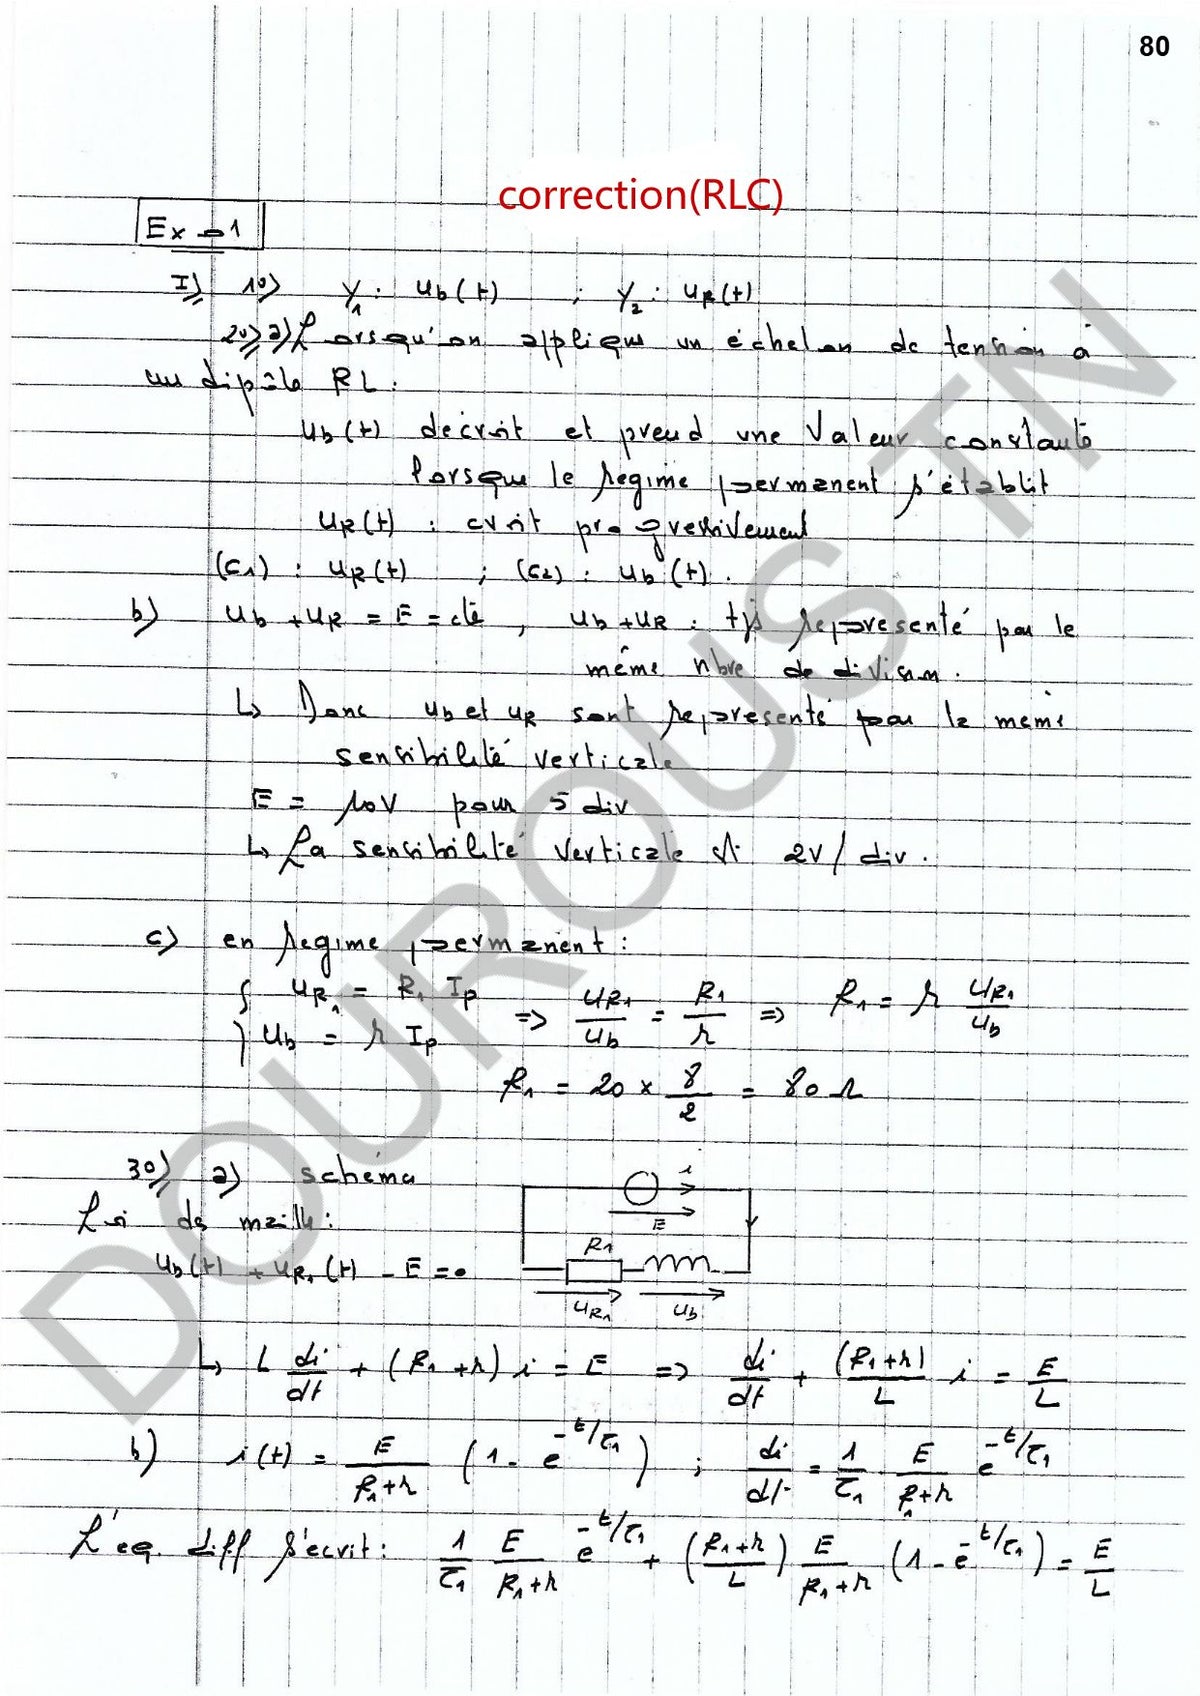 80
correction(RLC)
Ex 1
I) 1°) Y₁ : ub(t) ; Y₂ : uR(t)
2°) a) Lorsqu'on applique un échelon de tension à
un dipôle RL :
ub(t) décroit et prend une valeur constante
lorsque le régime permanent s'établit
uR(t) : croit progressivement
(C1) : uR(t) ; (C2) : ub(t).
b) ub + uR = E = cte , ub + uR : tjs représenté par le
même nbre de division.
↳ Donc ub et uR sont représenté par la même
sensibilité verticale
E = 10V pour 5 div
↳ La sensibilité verticale est 2V/div.
c) en régime permanent :
{ uR₁ = R₁ Ip
ub = r Ip ⇒ uR₁/ub = R₁/r ⇒ R₁ = r uR₁/ub
R₁ = 20 × 8/2 = 80 Ω
3°) a) schéma
i
E
Loi de maille :
R₁
ub(t) + uR₁(t) - E = 0
uR₁ ub
↳ L di/dt + (R₁ + r) i = E ⇒ di/dt + (R₁+r)/L i = E/L
b) i(t) = E/(R₁+r) (1 - e^(-t/τ₁)) ; di/dt = 1/τ₁ · E/(R₁+r) e^(-t/τ₁)
L'eq. diff s'écrit : 1/τ₁ E/(R₁+r) e^(-t/τ₁) + ((R₁+r)/L) E/(R₁+r) (1 - e^(-t/τ₁)) = E/L
DOUROUS TN